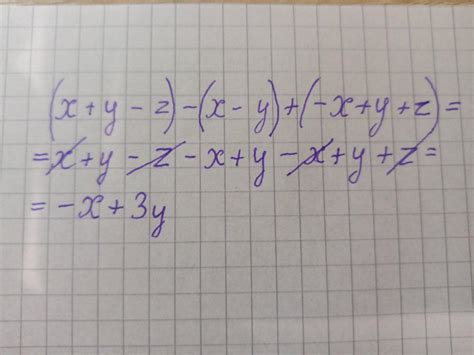 (x+y-z)-(x-y)+(-x+y+z)=
=x+y-z-x+y-x+y+z=
=-x+3y